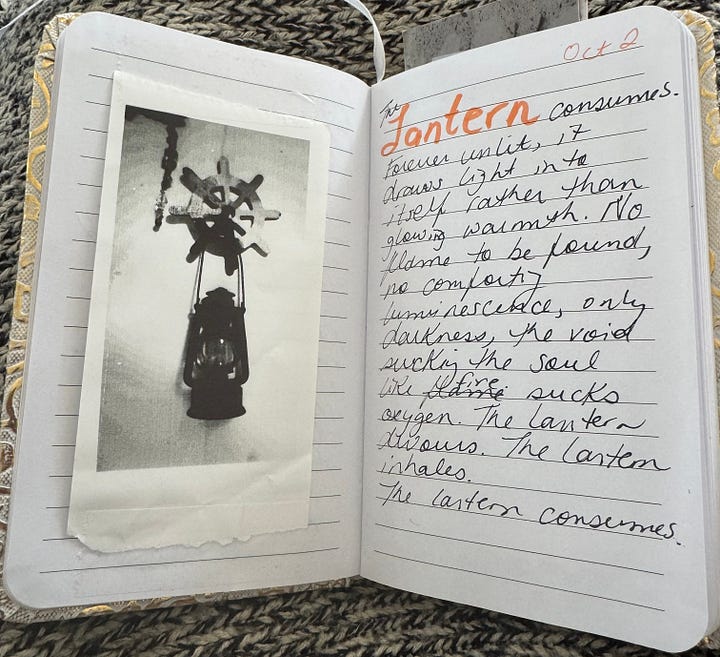 Oct 2
The Lantern consumes.
Forever unlit, it
draws light into
itself rather than
glowing warmth. No
flame to be found,
no comforting
luminescence, only
darkness, the void
sucking the soul
like flame fire sucks
oxygen. The lantern
divours. The lantern
inhales.
The lantern consumes.